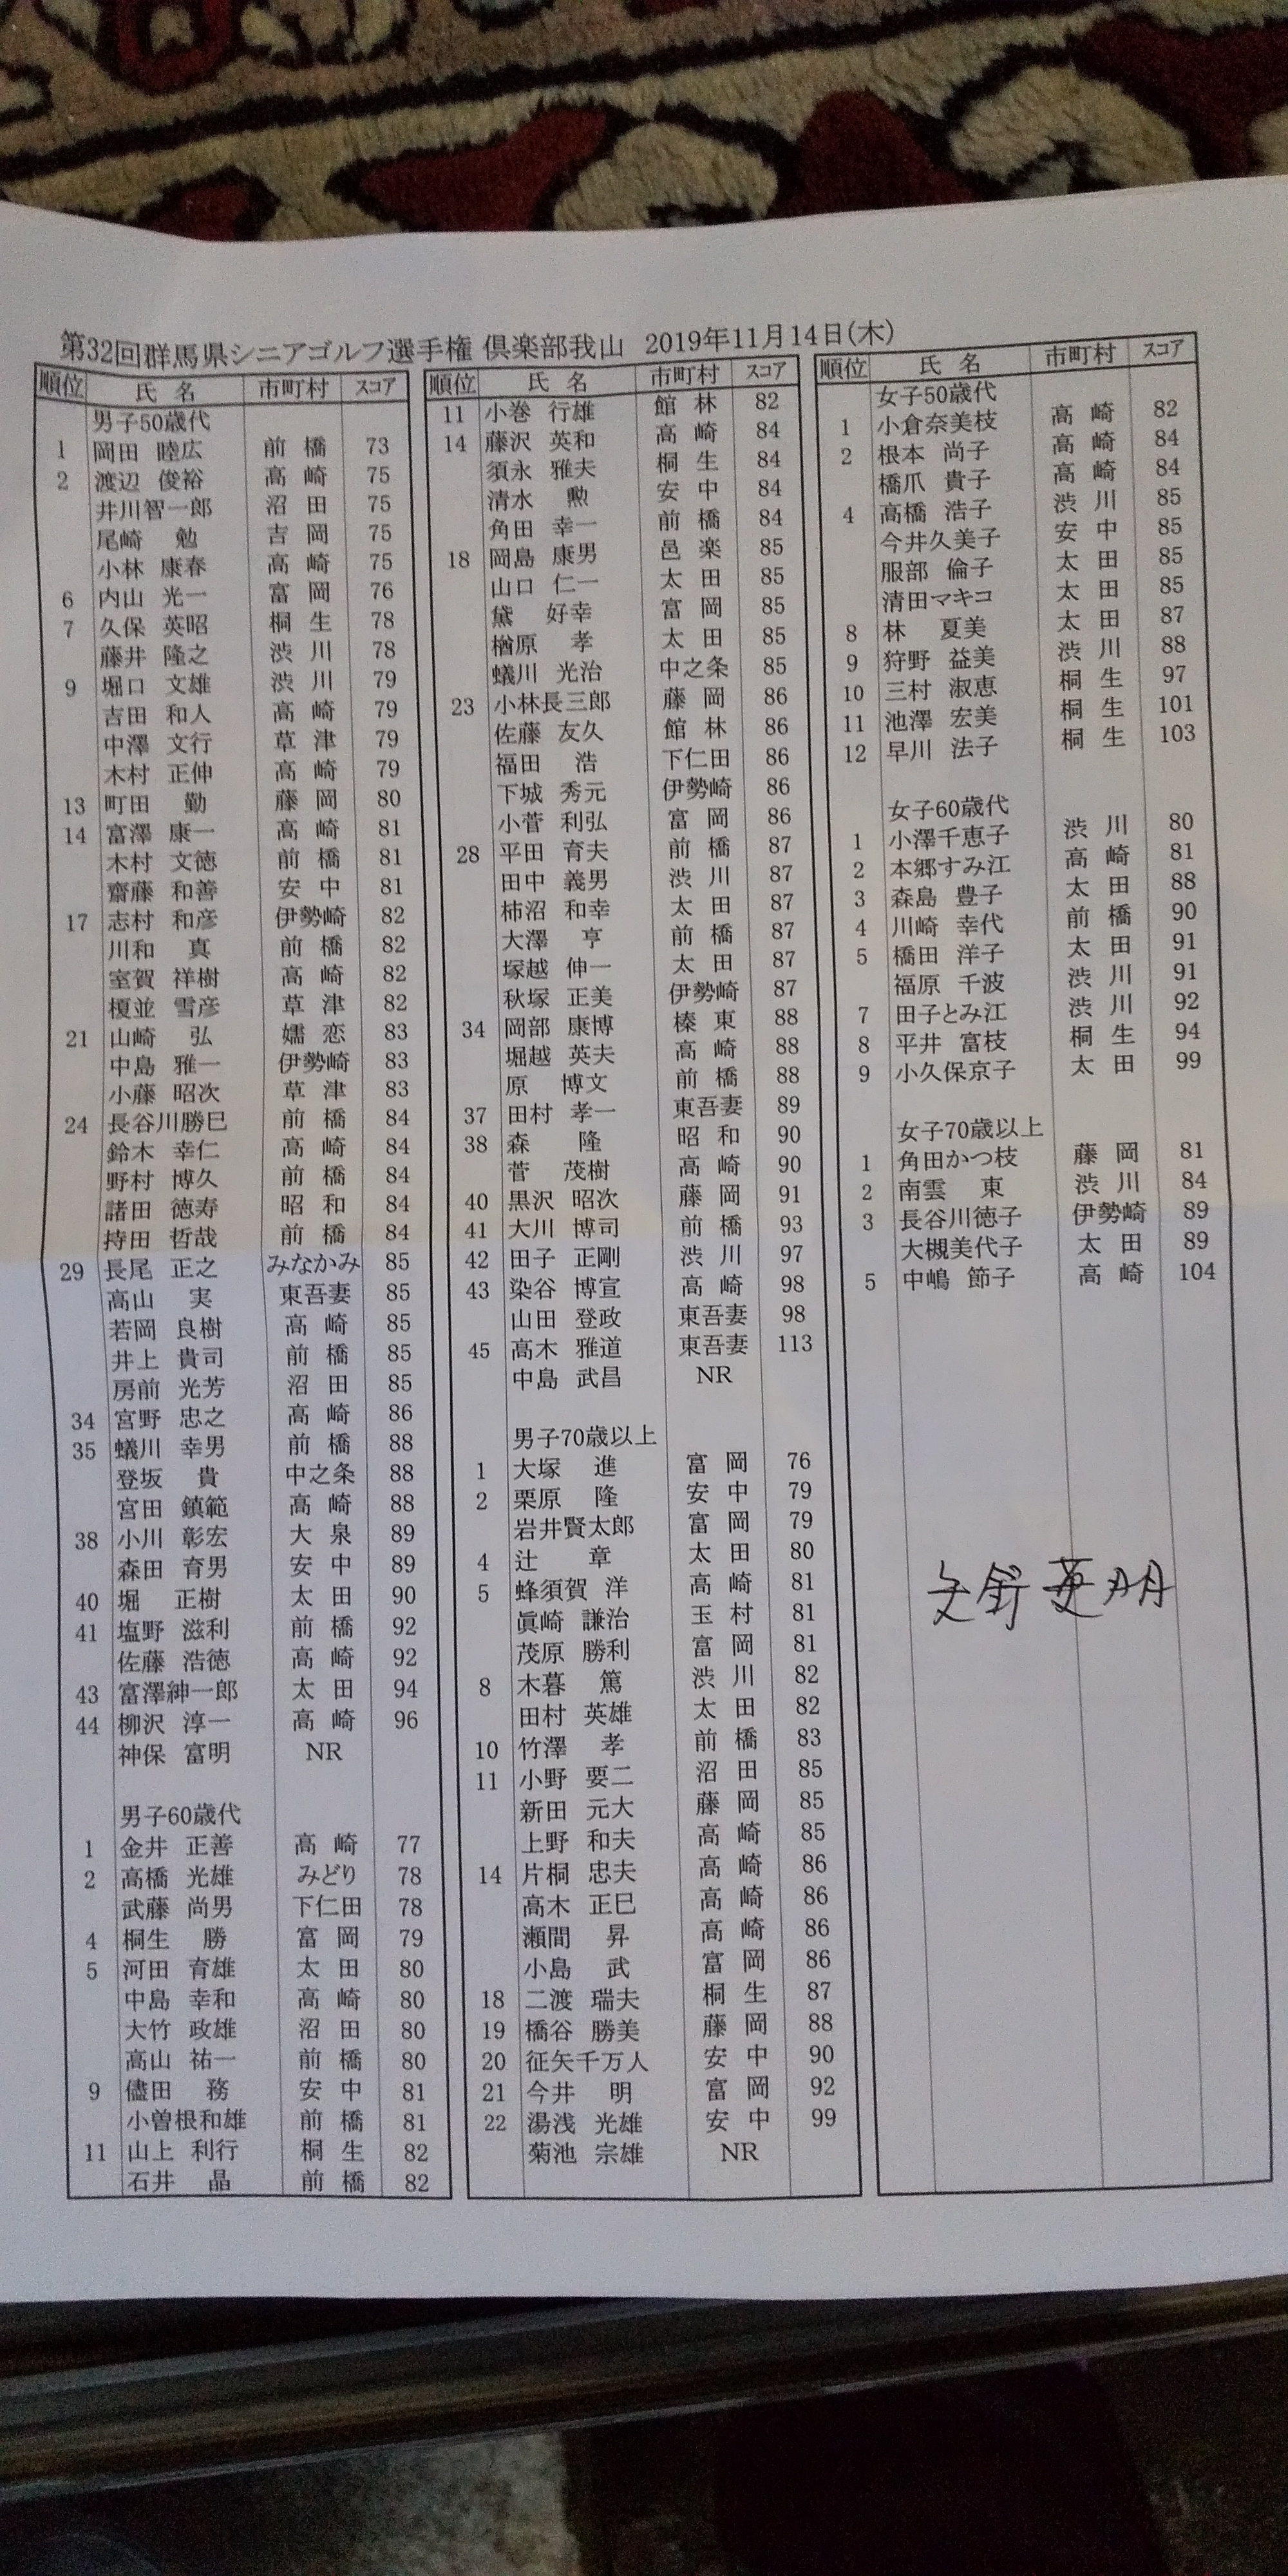 第32回群馬県シニアゴルフ選手権 倶楽部我山 2019年11月14日(木)
順位 氏名 市町村 スコア
男子50歳代
1 岡田 睦広 前橋 73
2 渡辺 俊裕 高崎 75
井川智一郎 沼田 75
尾崎 勉 吉岡 75
小林 康春 高崎 75
6 内山 光一 富岡 76
7 久保 英昭 桐生 78
藤井 隆之 渋川 78
9 堀口 文雄 渋川 79
吉田 和人 高崎 79
中澤 文行 草津 79
木村 正伸 高崎 79
13 町田 勤 藤岡 80
14 富澤 康一 高崎 81
木村 文徳 前橋 81
齋藤 和善 安中 81
17 志村 和彦 伊勢崎 82
川和 真 前橋 82
室賀 祥樹 高崎 82
榎並 雪彦 草津 82
21 山崎 弘 嬬恋 83
中島 雅一 伊勢崎 83
小藤 昭次 草津 83
24 長谷川勝巳 前橋 84
鈴木 幸仁 高崎 84
野村 博久 前橋 84
諸田 徳寿 昭和 84
持田 哲哉 前橋 84
29 長尾 正之 みなかみ 85
高山 実 東吾妻 85
若岡 良樹 高崎 85
井上 貴司 前橋 85
房前 光芳 沼田 85
34 宮野 忠之 高崎 86
35 蟻川 幸男 前橋 88
登坂 貴 中之条 88
宮田 鎮範 高崎 88
38 小川 彰宏 大泉 89
森田 育男 安中 89
40 堀 正樹 太田 90
41 塩野 滋利 前橋 92
佐藤 浩徳 高崎 92
43 富澤紳一郎 太田 94
44 柳沢 淳一 高崎 96
神保 富明 NR
男子60歳代
1 金井 正善 高崎 77
2 高橋 光雄 みどり 78
武藤 尚男 下仁田 78
4 桐生 勝 富岡 79
5 河田 育雄 太田 80
中島 幸和 高崎 80
大竹 政雄 沼田 80
高山 祐一 前橋 80
9 儘田 務 安中 81
小曽根和雄 前橋 81
11 山上 利行 桐生 82
石井 晶 前橋 82
順位 氏名 市町村 スコア
11 小巻 行雄 館林 82
14 藤沢 英和 高崎 84
須永 雅夫 桐生 84
清水 勲 安中 84
角田 幸一 前橋 84
18 岡島 康男 邑楽 85
山口 仁一 太田 85
黛 好幸 富岡 85
楢原 孝 太田 85
蟻川 光治 中之条 85
23 小林長三郎 藤岡 86
佐藤 友久 館林 86
福田 浩 下仁田 86
下城 秀元 伊勢崎 86
小菅 利弘 富岡 86
28 平田 育夫 前橋 87
田中 義男 渋川 87
柿沼 和幸 太田 87
大澤 亨 前橋 87
塚越 伸一 太田 87
秋塚 正美 伊勢崎 87
34 岡部 康博 榛東 88
堀越 英夫 高崎 88
原 博文 前橋 88
37 田村 孝一 東吾妻 89
38 森 隆 昭和 90
菅 茂樹 高崎 90
40 黒沢 昭次 藤岡 91
41 大川 博司 前橋 93
42 田子 正剛 渋川 97
43 染谷 博宣 高崎 98
山田 登政 東吾妻 98
45 高木 雅道 東吾妻 113
中島 武昌 NR
男子70歳以上
1 大塚 進 富岡 76
2 栗原 隆 安中 79
岩井賢太郎 富岡 79
4 辻 章 太田 80
5 蜂須賀 洋 高崎 81
眞崎 謙治 玉村 81
茂原 勝利 富岡 81
8 木暮 篤 渋川 82
田村 英雄 太田 82
10 竹澤 孝 前橋 83
11 小野 要二 沼田 85
新田 元大 藤岡 85
上野 和夫 高崎 85
14 片桐 忠夫 高崎 86
高木 正巳 高崎 86
瀬間 昇 高崎 86
小島 武 富岡 86
18 二渡 瑞夫 桐生 87
19 橋谷 勝美 藤岡 88
20 征矢千万人 安中 90
21 今井 明 富岡 92
22 湯浅 光雄 安中 99
菊池 宗雄 NR
順位 氏名 市町村 スコア
女子50歳代
1 小倉奈美枝 高崎 82
2 根本 尚子 高崎 84
橋爪 貴子 高崎 84
4 高橋 浩子 渋川 85
今井久美子 安中 85
服部 倫子 太田 85
清田マキコ 太田 85
8 林 夏美 太田 87
9 狩野 益美 渋川 88
10 三村 淑恵 桐生 97
11 池澤 宏美 桐生 101
12 早川 法子 桐生 103
女子60歳代
1 小澤千恵子 渋川 80
2 本郷すみ江 高崎 81
3 森島 豊子 太田 88
4 川崎 幸代 前橋 90
5 橋田 洋子 太田 91
福原 千波 渋川 91
7 田子とみ江 渋川 92
8 平井 富枝 桐生 94
9 小久保京子 太田 99
女子70歳以上
1 角田かつ枝 藤岡 81
2 南雲 東 渋川 84
3 長谷川徳子 伊勢崎 89
大槻美代子 太田 89
5 中嶋 節子 高崎 104